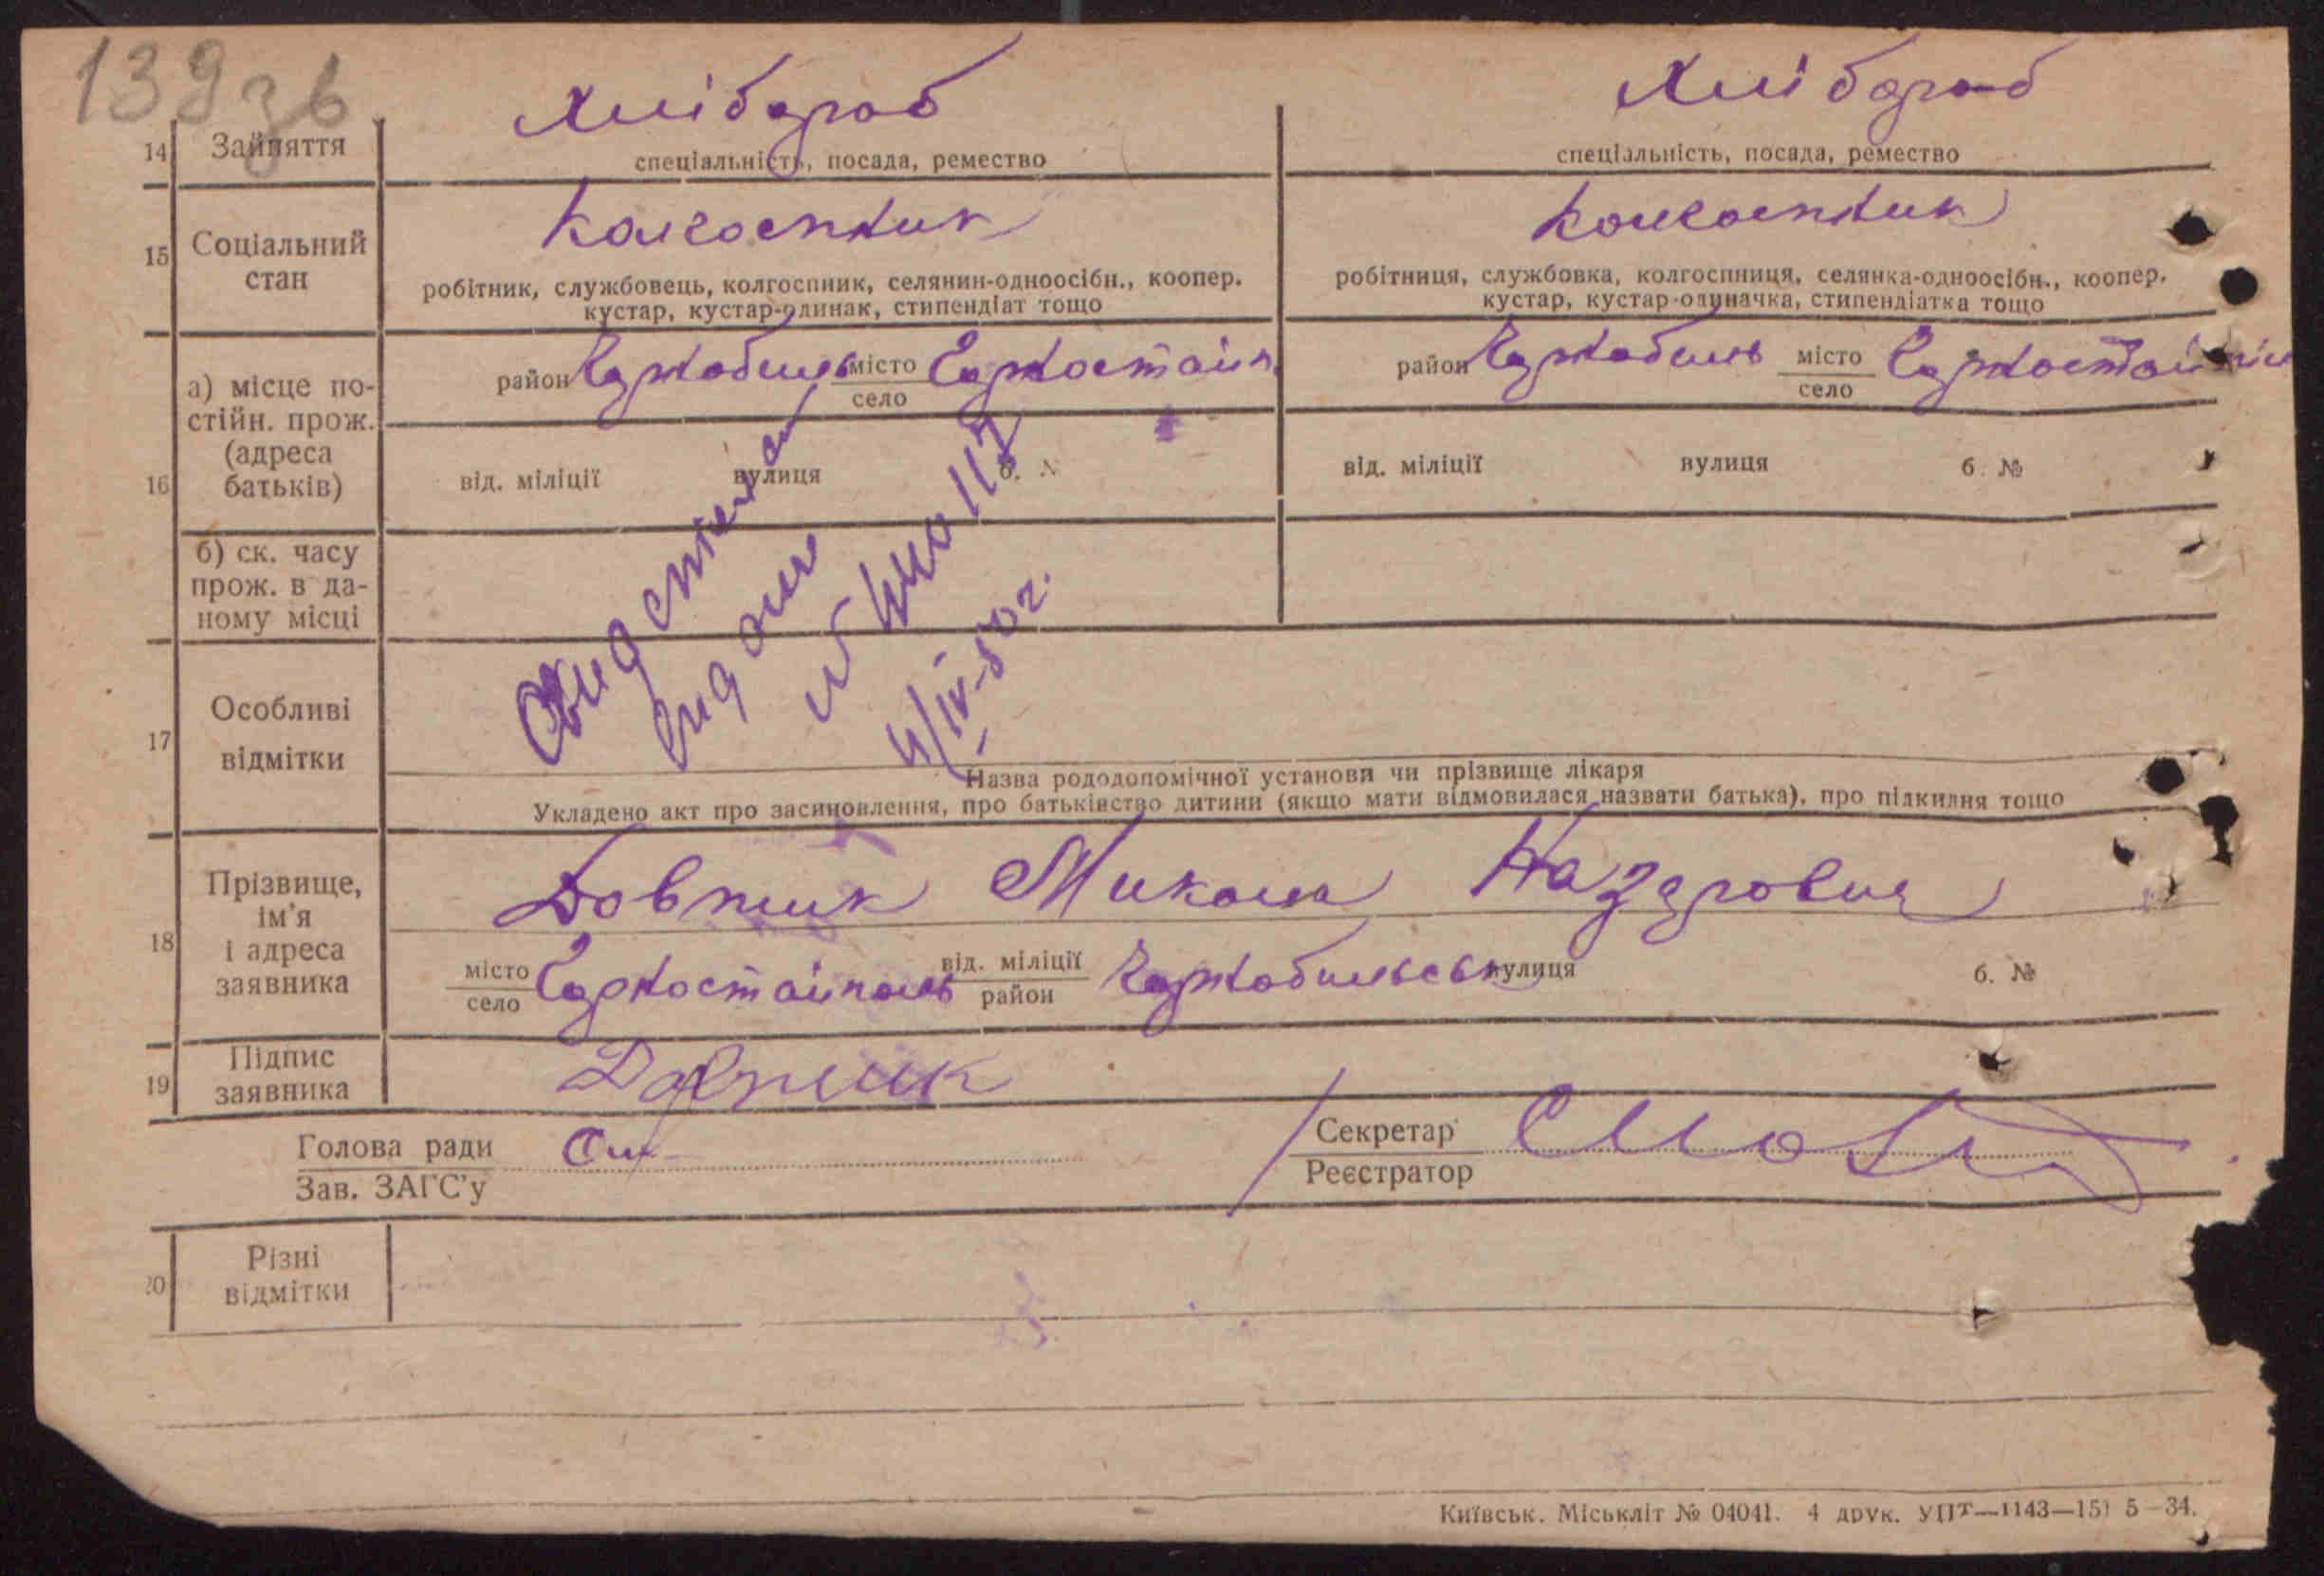 139 зв
Хлібороб Хлібороб
14 Зайняття спеціальність, посада, ремество спеціальність, посада, ремество
Колгоспник Колгоспник
15 Соціальний стан
робітник, службовець, колгоспник, селянин-одноосібн., коопер. робітниця, службовка, колгоспниця, селянка-одноосібн., коопер.
кустар, кустар-одинак, стипендіат тощо кустар, кустар-одиначка, стипендіатка тощо
район Чорнобиль місто Чорностайп. район Чорнобиль місто Чорностайпіль
село село
16 а) місце по-
стійн. прож.
(адреса
батьків)
від. міліції вулиця б. № від. міліції вулиця б. №
б) ск. часу
прож. в да-
ному місці
17 Особливі
відмітки
4/IV-50 г.
Назва рододопомічної установи чи прізвище лікаря
Укладено акт про засиновлення, про батьківство дитини (якщо мати відмовилася назвати батька), про підкидня тощо
18 Прізвище,
ім'я
і адреса
заявника
Довпник Микола Назарович
місто Чорностайполь від. міліції Чорнобильськ вулиця б. №
село район
19 Підпис
заявника
Голова ради Секретар
Зав. ЗАГС'у Реєстратор
20 Різні
відмітки
Київськ. Міськліт № 04041. 4 друк. УПТ—1143—151 5—34.